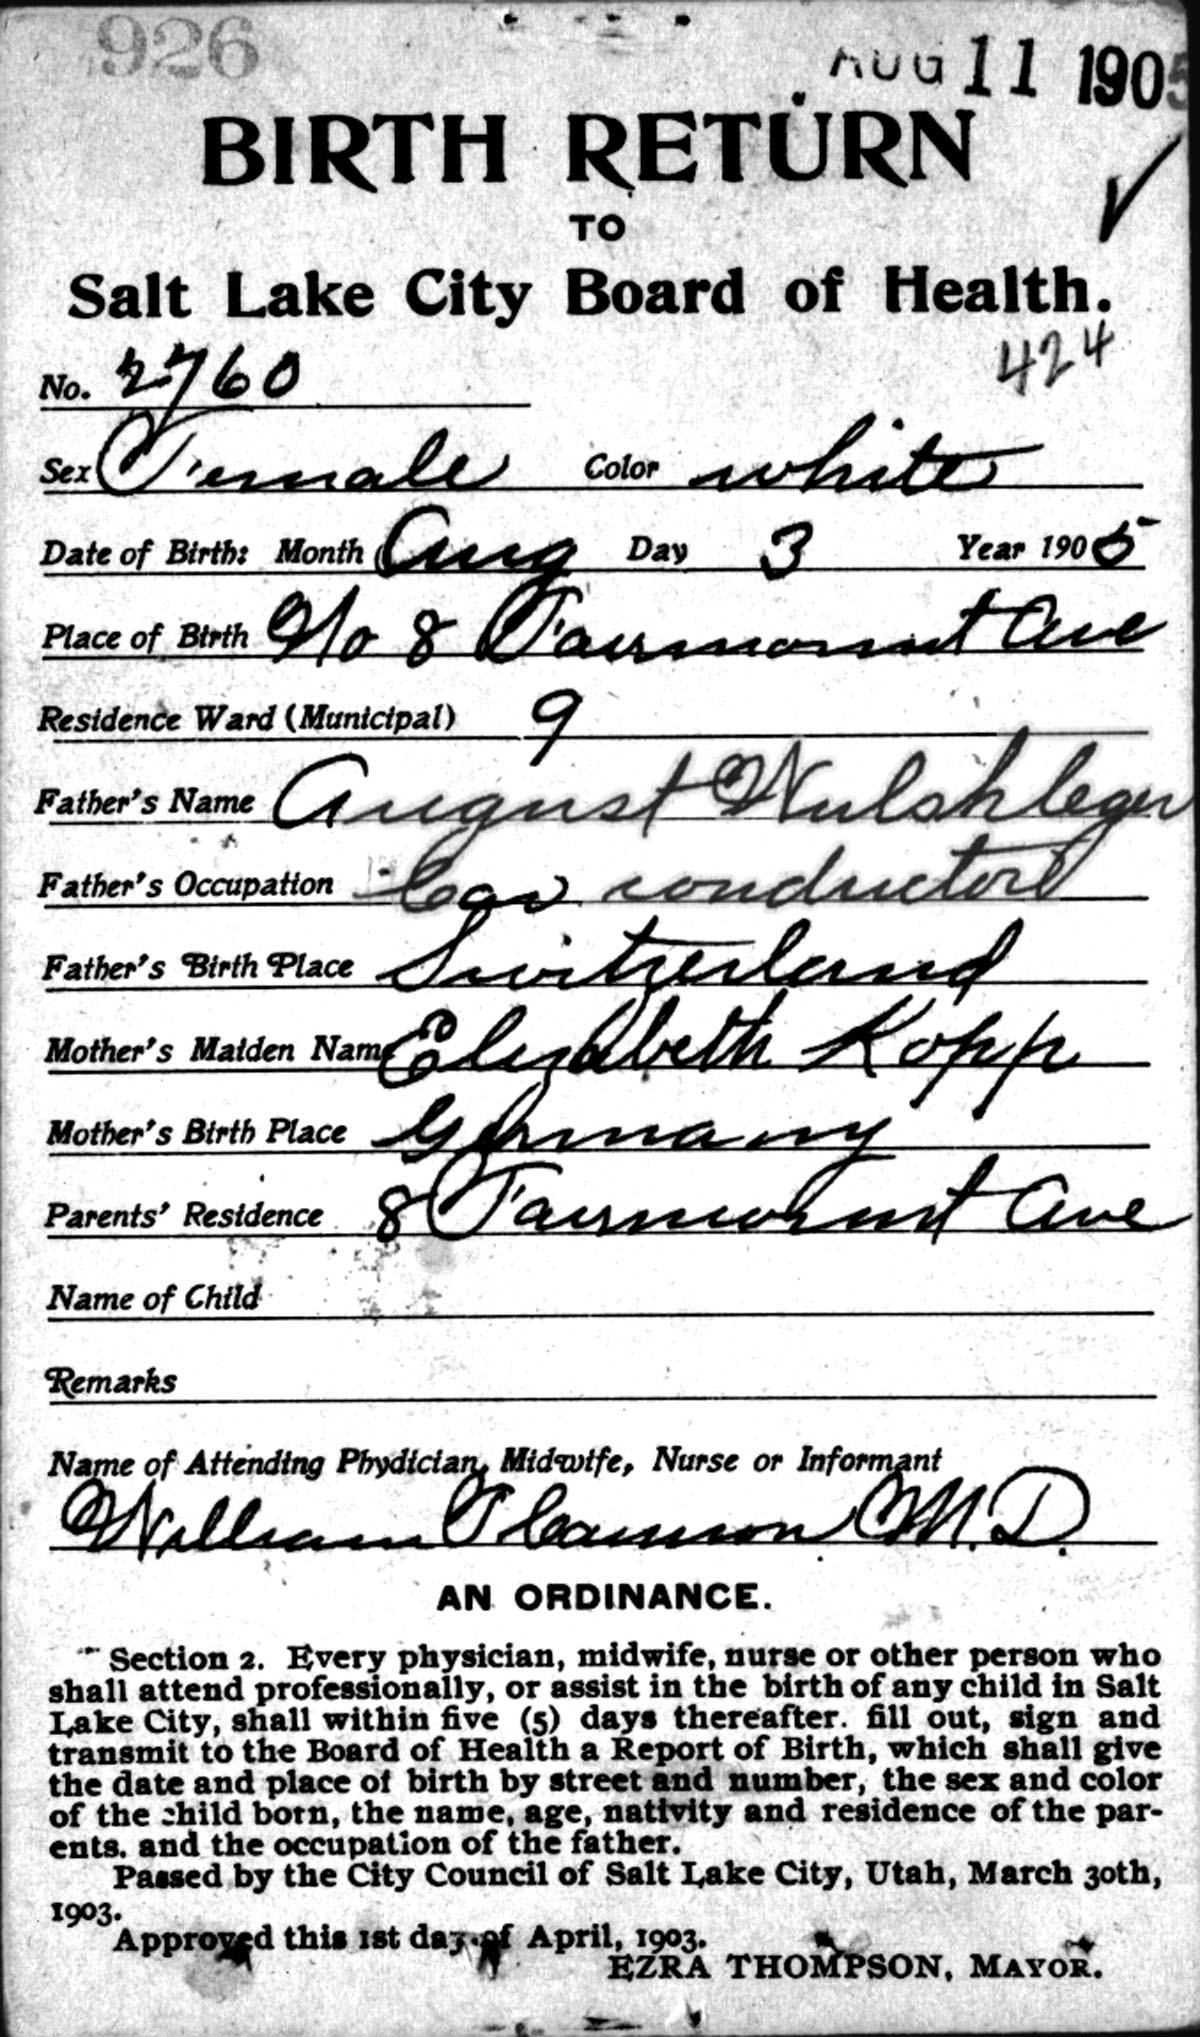 926
AUG 11 1905
BIRTH RETURN
TO
Salt Lake City Board of Health.
424
No. 2760
Sex Female Color white
Date of Birth: Month Aug Day 3 Year 1905
Place of Birth No 8 Fairmount Ave
Residence Ward (Municipal) 9
Father's Name August Wulshleger
Father's Occupation Car conductor
Father's Birth Place Switzerland
Mother's Maiden Name Elizabeth Kopp
Mother's Birth Place Germany
Parents' Residence 8 Fairmount Ave
Name of Child
Remarks
Name of Attending Phydician, Midwife, Nurse or Informant
William T Cannon M.D.
AN ORDINANCE.
Section 2. Every physician, midwife, nurse or other person who
shall attend professionally, or assist in the birth of any child in Salt
Lake City, shall within five (5) days thereafter. fill out, sign and
transmit to the Board of Health a Report of Birth, which shall give
the date and place of birth by street and number, the sex and color
of the child born, the name, age, nativity and residence of the par-
ents. and the occupation of the father.
Passed by the City Council of Salt Lake City, Utah, March 30th,
1903.
Approved this 1st day of April, 1903.
EZRA THOMPSON, MAYOR.